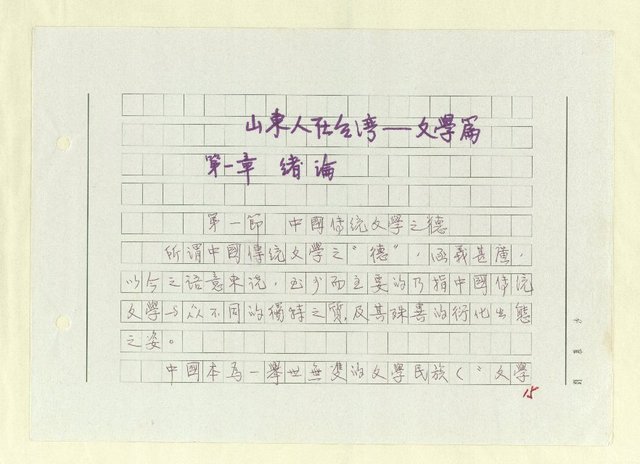 山東人在台湾——文學篇
第一章 緒論
第一節 中國傳统文學之德
所谓中國傳统文學之"德"，涵義甚廣，
以今之語意来说，至少而主要的乃指中國傳统
文學与众不同的獨特之質，及其殊異的衍化生態
之姿。
中國本為一舉世無雙的文學民族（"文學
15